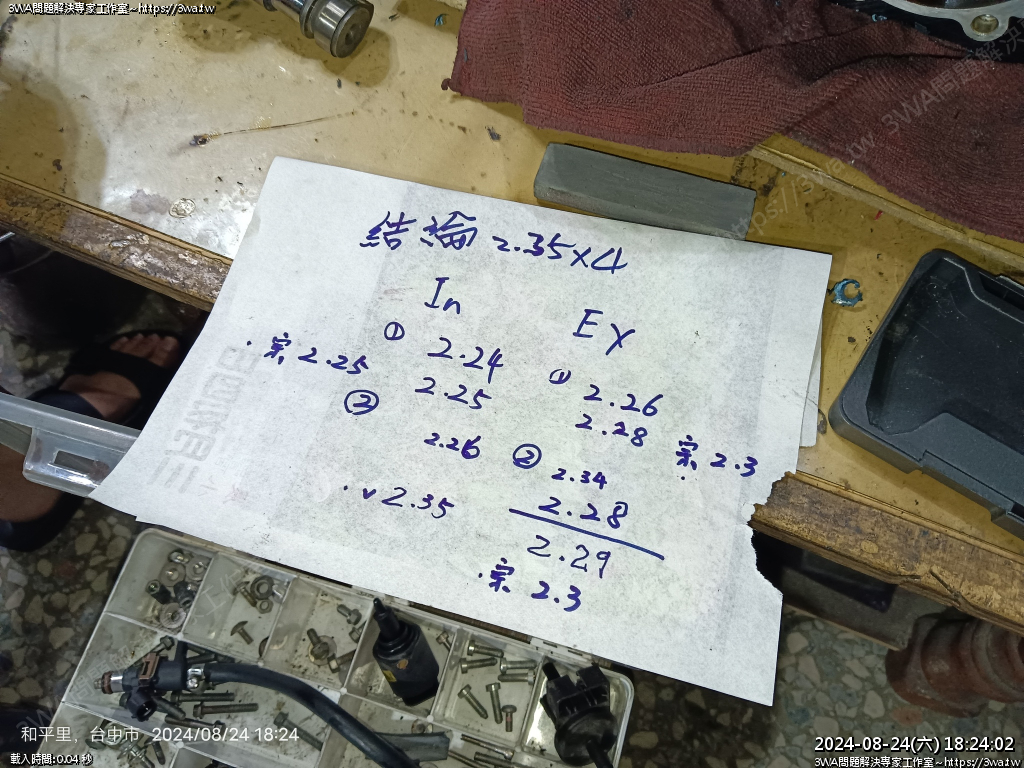 3WA問題解決專家工作室~https://3wa.tw
結論 2.35×4
In
EX
① 2.24
2.25
實 2.25
②
2.26
2.35
① 2.26
2.28
實 2.3
② 2.34
2.28
2.29
實 2.3
和平里，台中市 2024/08/24 18:24
載入時間:0.04 秒
2024-08-24(六) 18:24:02
3WA問題解決專家工作室~https://3wa.tw
https://3wa.tw 3WA問題解決